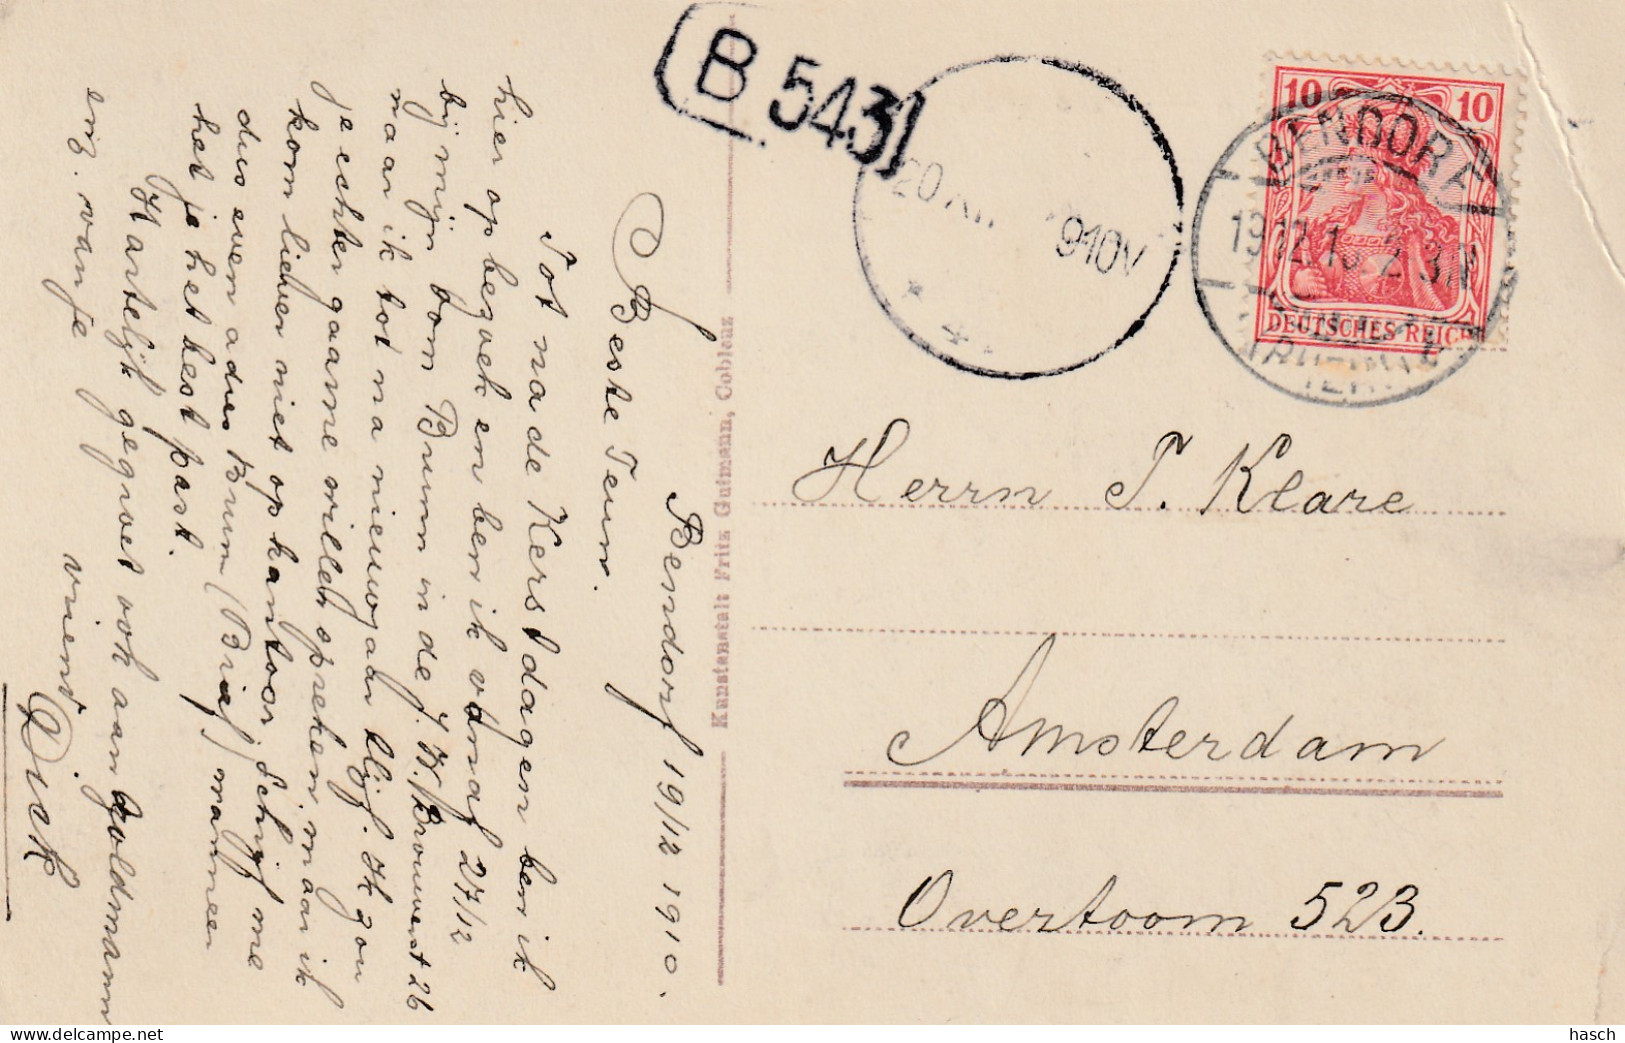 Bendorf 19/12 1910.
Beste Teun.
Tot na de Kerstdagen ben ik
hier op bezoek en ben ik vanaf 27/12
bij mijn oom Bruun in de J. W. Brouwerst 26
naar ik tot na nieuwjaar blijf. Ik zou
je echter gaarne willen spreken, maar ik
kom liever niet op kantoor, Schrijf me
dus even adres Bruun (Brief) wanneer
het je het best past.
Hartelijk gegroet ook aan Goldmann
enz. van je
vriend
Dick
Kunstanstalt Fritz Gutmann, Coblenz
B 5431
20 XII 910V
10 10
DEUTSCHES REICH
BENDORF
19.12.10 2-3N
Herrn T. Klare
Amsterdam
Overtoom 523.
hasch